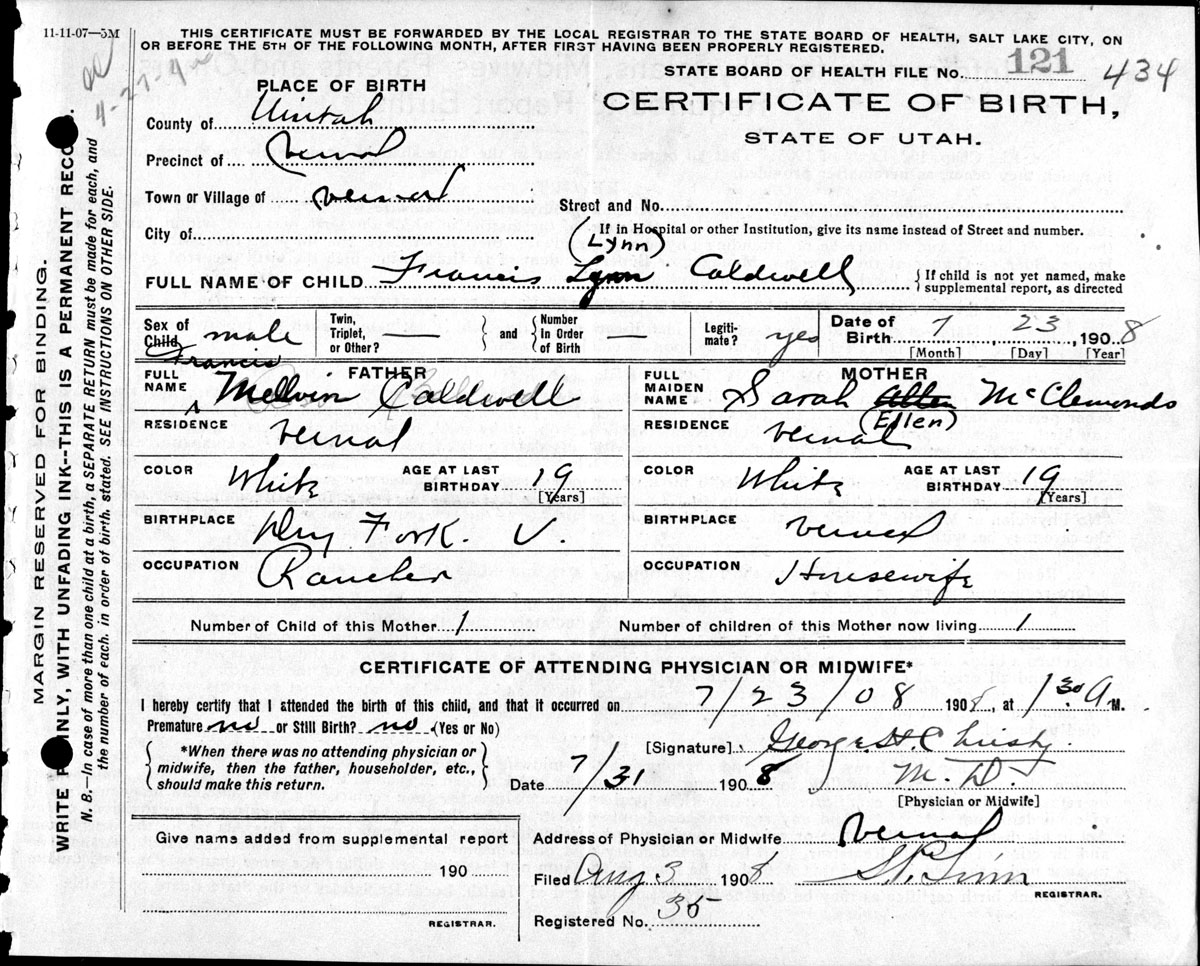 11-11-07—5M
THIS CERTIFICATE MUST BE FORWARDED BY THE LOCAL REGISTRAR TO THE STATE BOARD OF HEALTH, SALT LAKE CITY, ON
OR BEFORE THE 5TH OF THE FOLLOWING MONTH, AFTER FIRST HAVING BEEN PROPERLY REGISTERED.
STATE BOARD OF HEALTH FILE No. 121 434
PLACE OF BIRTH
CERTIFICATE OF BIRTH,
STATE OF UTAH.
County of Uintah
Precinct of Vernal
Town or Village of Vernal
Street and No.
City of
If in Hospital or other Institution, give its name instead of Street and number.
(Lynn)
FULL NAME OF CHILD Francis Lynn Caldwell
{ If child is not yet named, make
supplemental report, as directed
Sex of Child male
Twin, Triplet, or Other? — and Number In Order of Birth —
Legitimate? yes
Date of Birth 7 23 1908
[Month] [Day] [Year]
FATHER
Francis
FULL NAME Melvin Caldwell
RESIDENCE Vernal
COLOR White
AGE AT LAST BIRTHDAY 19
[Years]
BIRTHPLACE Dry Fork. U.
OCCUPATION Rancher
MOTHER
FULL MAIDEN NAME Sarah McClemonds
(Ellen)
RESIDENCE Vernal
COLOR White
AGE AT LAST BIRTHDAY 19
[Years]
BIRTHPLACE Vernal
OCCUPATION Housewife
Number of Child of this Mother 1
Number of children of this Mother now living 1
CERTIFICATE OF ATTENDING PHYSICIAN OR MIDWIFE*
I hereby certify that I attended the birth of this child, and that it occurred on 7/23/08 1908, at 1:30 A M.
Premature no or Still Birth? no (Yes or No)
*When there was no attending physician or
midwife, then the father, householder, etc.,
should make this return.
[Signature] George H. Christy.
M. D.
Date 7/31 1908
[Physician or Midwife]
Give name added from supplemental report
190
REGISTRAR.
Address of Physician or Midwife Vernal
Filed Aug 3 1908
REGISTRAR.
Registered No. 35
MARGIN RESERVED FOR BINDING.
WRITE PLAINLY, WITH UNFADING INK--THIS IS A PERMANENT RECORD.
N. B.—In case of more than one child at a birth, a SEPARATE RETURN must be made for each, and
the number of each. in order of birth. stated. SEE INSTRUCTIONS ON OTHER SIDE.